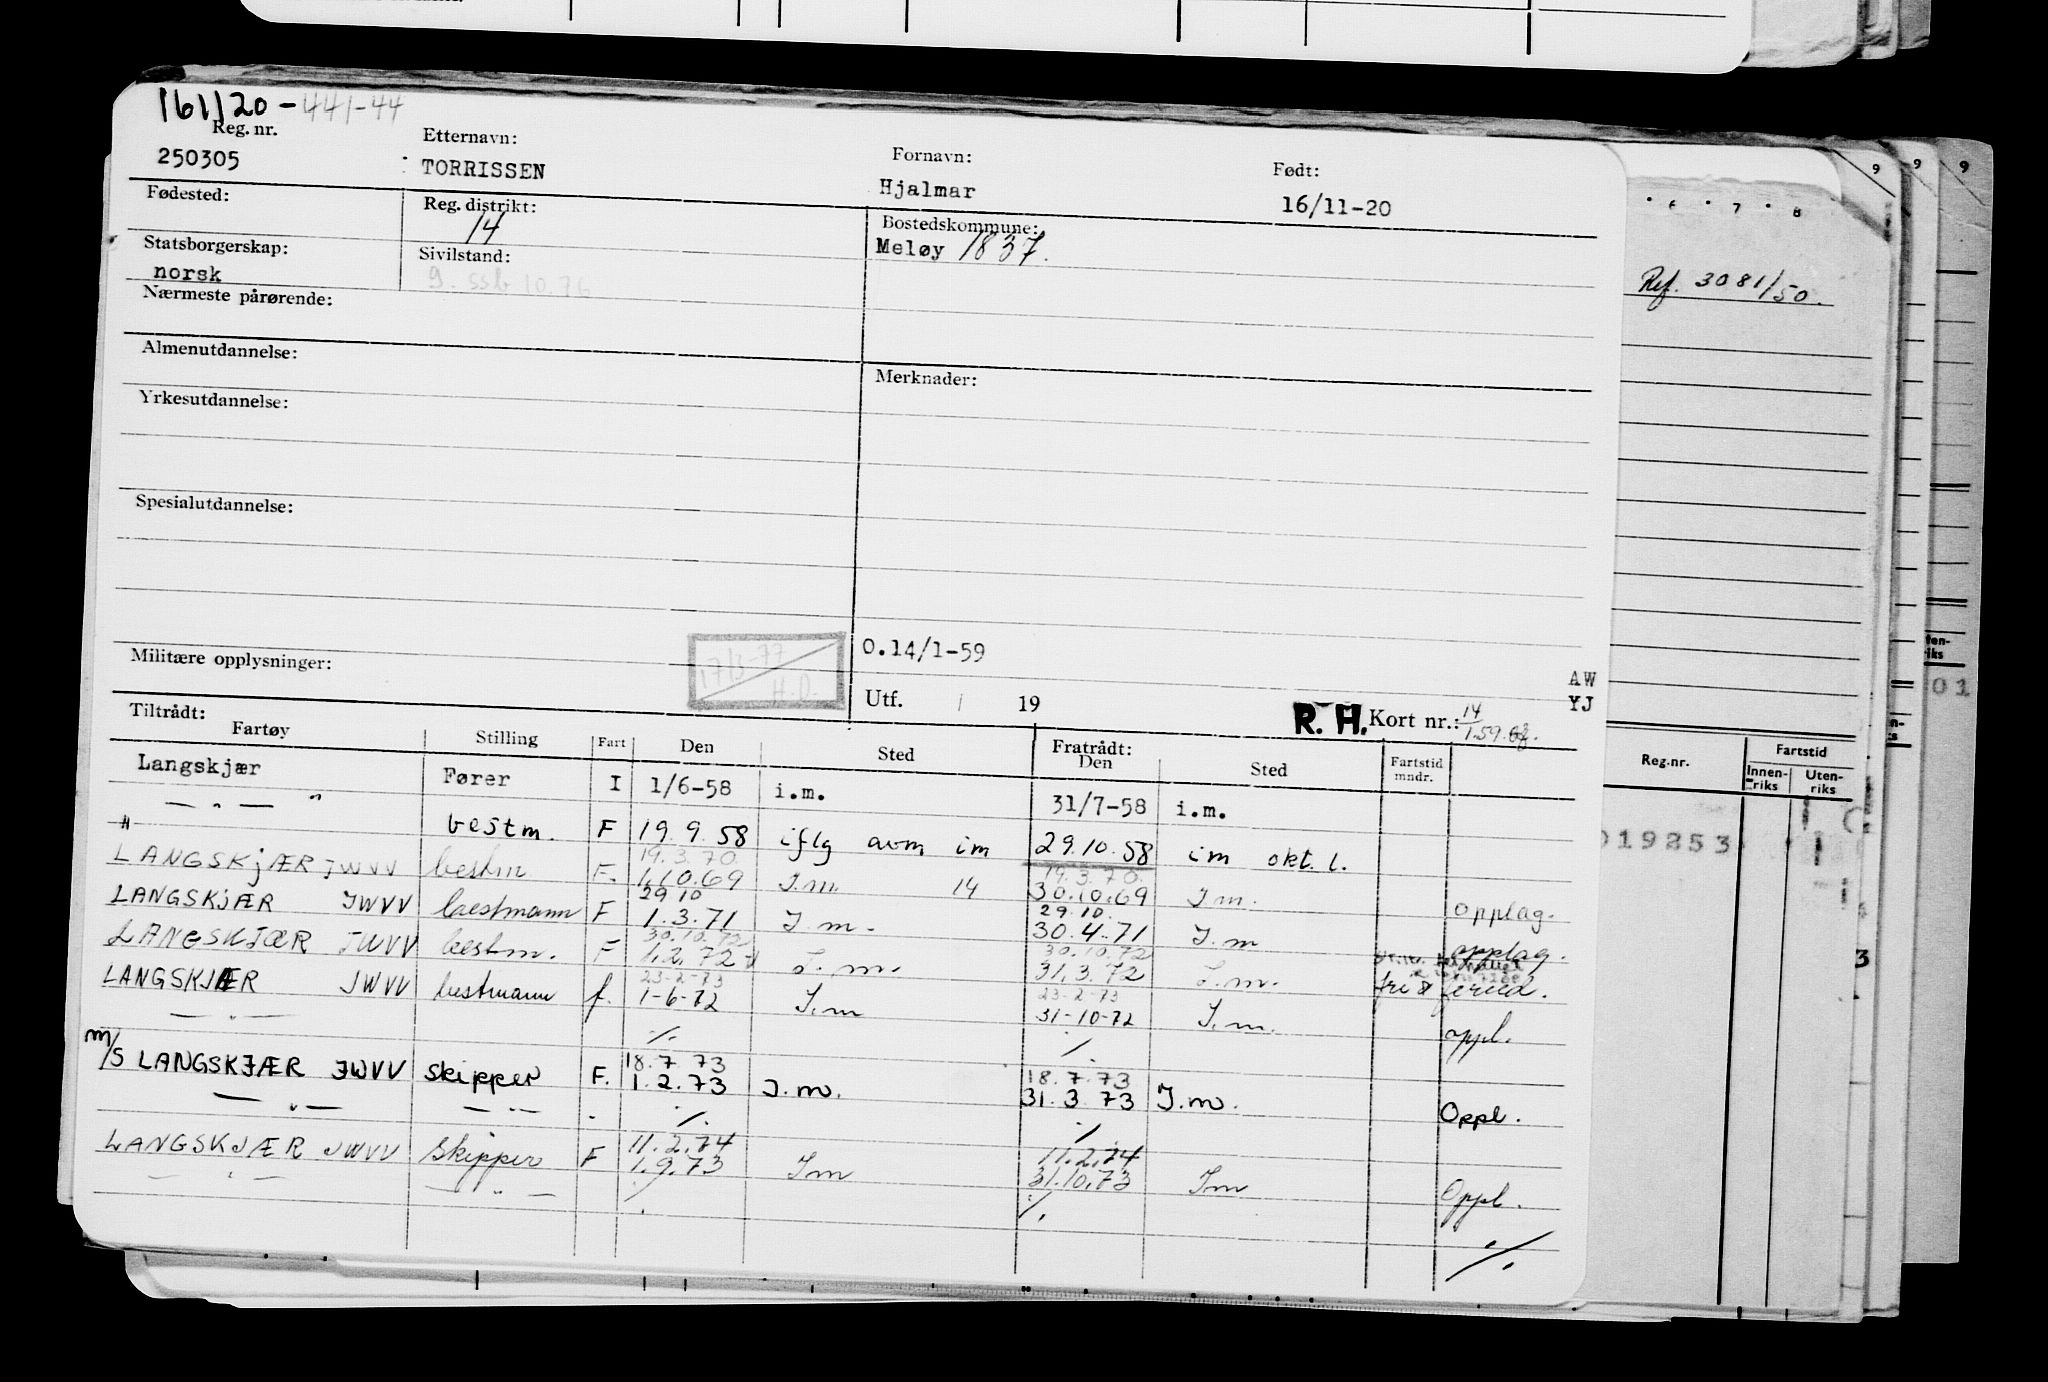 161120-441-44
Reg. nr. Etternavn: Fornavn: Født:
250305 TORRISSEN Hjalmar 16/11-20
Fødested: Reg. distrikt: 14 Bostedskommune:
Meløy 1837.
Statsborgerskap: Sivilstand:
norsk g. ssb 10.76
Nærmeste pårørende:
Almenutdannelse:
Merknader:
Yrkesutdannelse:
Spesialutdannelse:
Militære opplysninger: 17/3-77 H.O. O.14/1-59
AW
Utf. / 19 R.H. Kort nr.: 14/1.59. YJ
Tiltrådt: Fratrådt:
Fartøy Stilling Fart Den Sted Den Sted Fartstid mndr.
Langskjær Fører I 1/6-58 i.m. 31/7-58 i.m.
— " — "
" bestm. F 19.9.58 iflg avm im 29.10.58 im okt. l.
19.3.70. 19.3.70.
LANGSKJÆR JWVV bestm F. 1.10.69 I.m 14 30.10.69 I m. Opplag.
29 10 29.10.
LANGSKJÆR JWVV bestmann F 1.3.71 I.m. 30.4.71 I.m opplag.
30.10.72 30.10.72
LANGSKJÆR JWVV bestm. F 1.2.72 I.m. 31.3.72 I.m. fri & feried.
23-2-73 23-2-73
LANGSKJÆR JWVV bestmann f. 1-6-72 I.m 31-10-72 I.m. oppl.
— " — ·/. ·/.
18.7.73 18.7.73
m/s LANGSKJÆR JWVV skipper F. 1.2.73 I.m. 31.3.73 I.m. Oppl.
— " — — " — · ·/. ·/.
11.2.74 11.2.74
LANGSKJÆR JWVV Skipper F 1.9.73 Im 31.10.73 Im Oppl.
— " — — " — ·/. ·/.
·/.
9 9 9
6 · 7 · 8
Ref. 3081/50.
01
Reg.nr. Fartstid
Innen-riks Uten-riks
019253
3